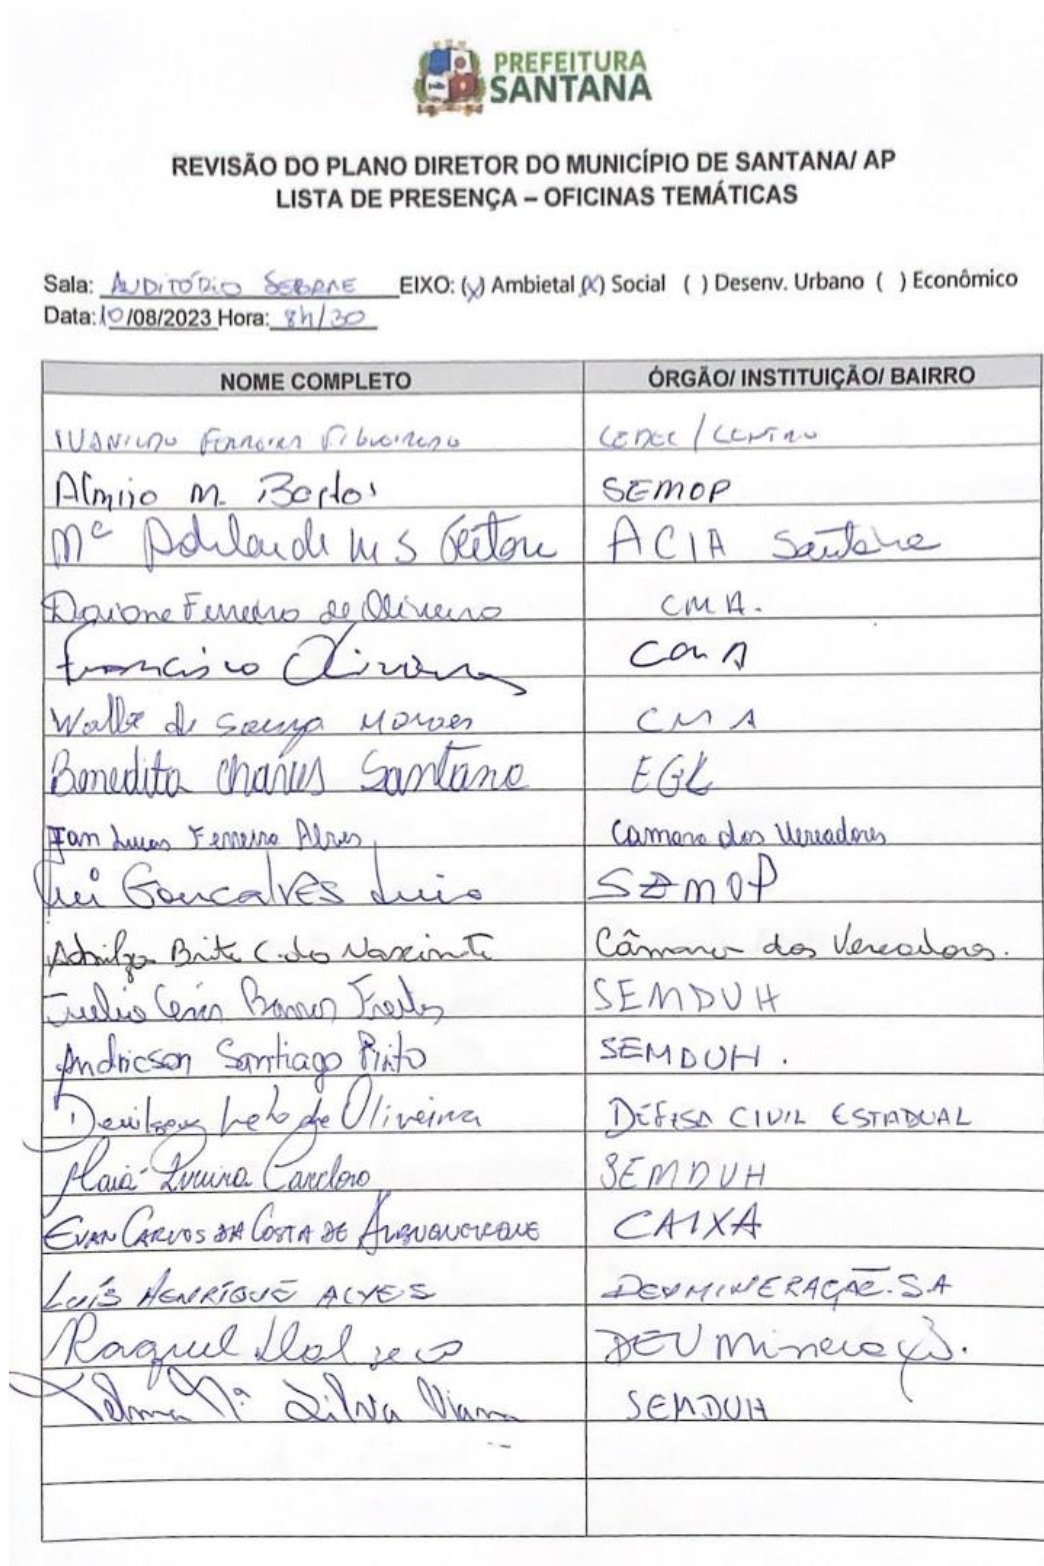 PREFEITURA
SANTANA
REVISÃO DO PLANO DIRETOR DO MUNICÍPIO DE SANTANA/ AP
LISTA DE PRESENÇA – OFICINAS TEMÁTICAS
Sala: AUDITÓRIO SEBRAE EIXO: (x) Ambietal (x) Social ( ) Desenv. Urbano ( ) Econômico
Data: 10/08/2023 Hora: 8h/30
NOME COMPLETO ÓRGÃO/ INSTITUIÇÃO/ BAIRRO
Ferreira CEDEC/CENTRO
M. SEMOP
Mª M S ACIA Santana
Daione Ferreira de Oliveira CMA.
Francisco Oliveira
de Souza Moraes CMA
Benedita Santana
Lucas Ferreira Alves Camara dos Vereadores
Rui Goncalves SEMOP
Brito C. do Nascimento Câmara dos Vereadores.
Julio Cesar Barros Freitas SEMDUH
Andricson Santiago Pinto SEMDUH.
de Oliveira DEFESA CIVIL ESTADUAL
Cardoso SEMDUH
EVAN CARLOS DA COSTA DE ALBUQUERQUE CAIXA
LUÍS HENRIQUE ALVES DEV MINERAÇÃO. S.A
Raquel DEV Mineração.
Telma Mª Silva Viana SEMDUH